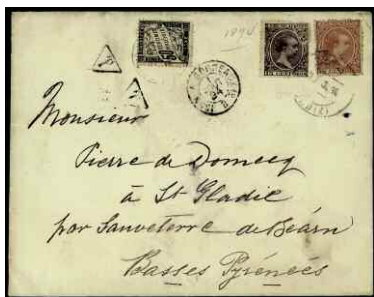 1894
Monsieur
Pierre de Domecq
à St Gladie
par Sauveterre de Béarn
Basses Pyrénées